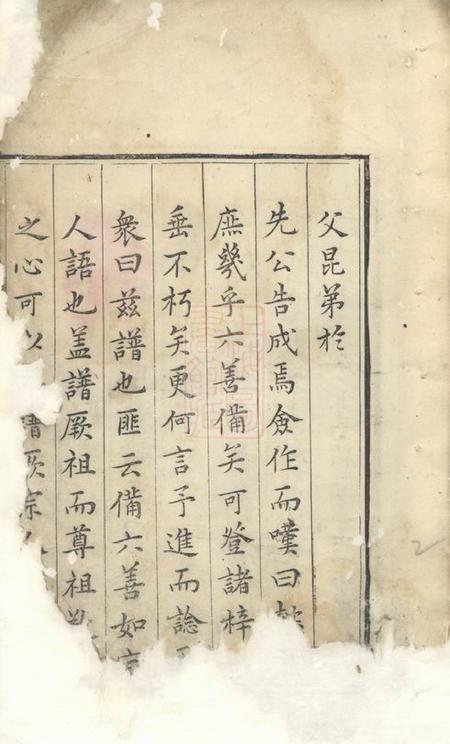 父昆弟於
先公告成焉僉作而嘆曰
庶幾乎六善備矣可登諸梓
垂不朽矣更何言予進而諗
衆曰兹譜也匪云備六善如
人語也盖譜厥祖而尊祖
之心可以譜厥宗
2